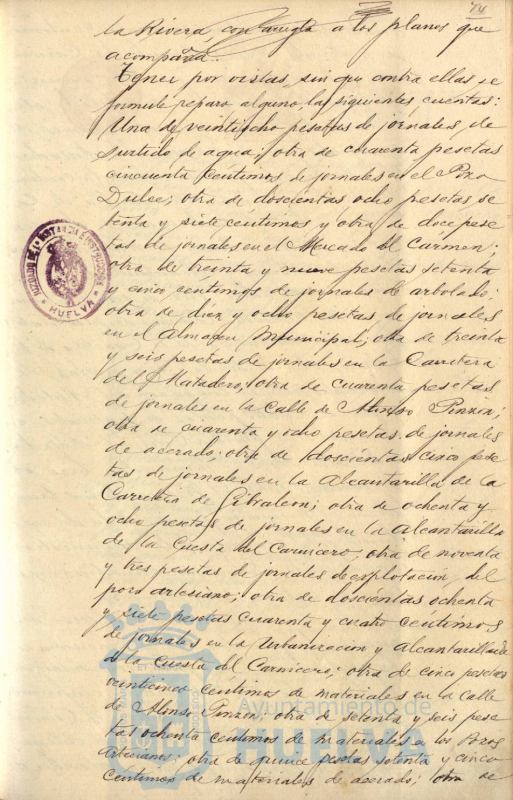 74
la Rivera, con arreglo a los planos que
acompaña.
Tener por vistas, sin que contra ellas se
formule reparo alguno, las siguientes cuentas:
Una de veintiocho pesetas de jornales, de
surtido de agua; otra de cuarenta pesetas
cincuenta centimos de jornales en el Pozo
Dulce; otra de doscientas ocho pesetas se
tenta y siete centimos y otra de doce pese
tas de jornales en el Mercado del Carmen;
otra de treinta y nueve pesetas setenta
y cinco centimos de jornales de arbolado;
otra de diez y ocho pesetas de jornales
en el Almacen Municipal; otra de treinta
y seis pesetas de jornales en la Carretera
del Matadero; otra de cuarenta pesetas
de jornales en la Calle de Alonso Pinzon;
otra de cuarenta y ocho pesetas de jornales
de acerado; otra de doscientas cinco pese
tas de jornales en la Alcantarilla de la
Carretera de Gibraleon; otra de ochenta y
ocho pesetas de jornales en la Alcantarilla
de la Cuesta del Carnicero; otra de noventa
y tres pesetas de jornales de explotacion del
pozo artesiano; otra de doscientas ochenta
y siete pesetas cuarenta y cuatro centimos
de jornales en la Urbanizacion y Alcantarillado
de la Cuesta del Carnicero; otra de cinco pesetas
veinticinco centimos de materiales en la calle
de Alonso Pinzon; otra de setenta y seis pese
tas ochenta centimos de materiales a los Pozos
Artesianos; otra de quince pesetas setenta y cinco
centimos de materiales de acerado; otra de
JUZGADO DE 1ª INSTANCIA E INSTRUCCION
HUELVA
Ayuntamiento de
HUELVA